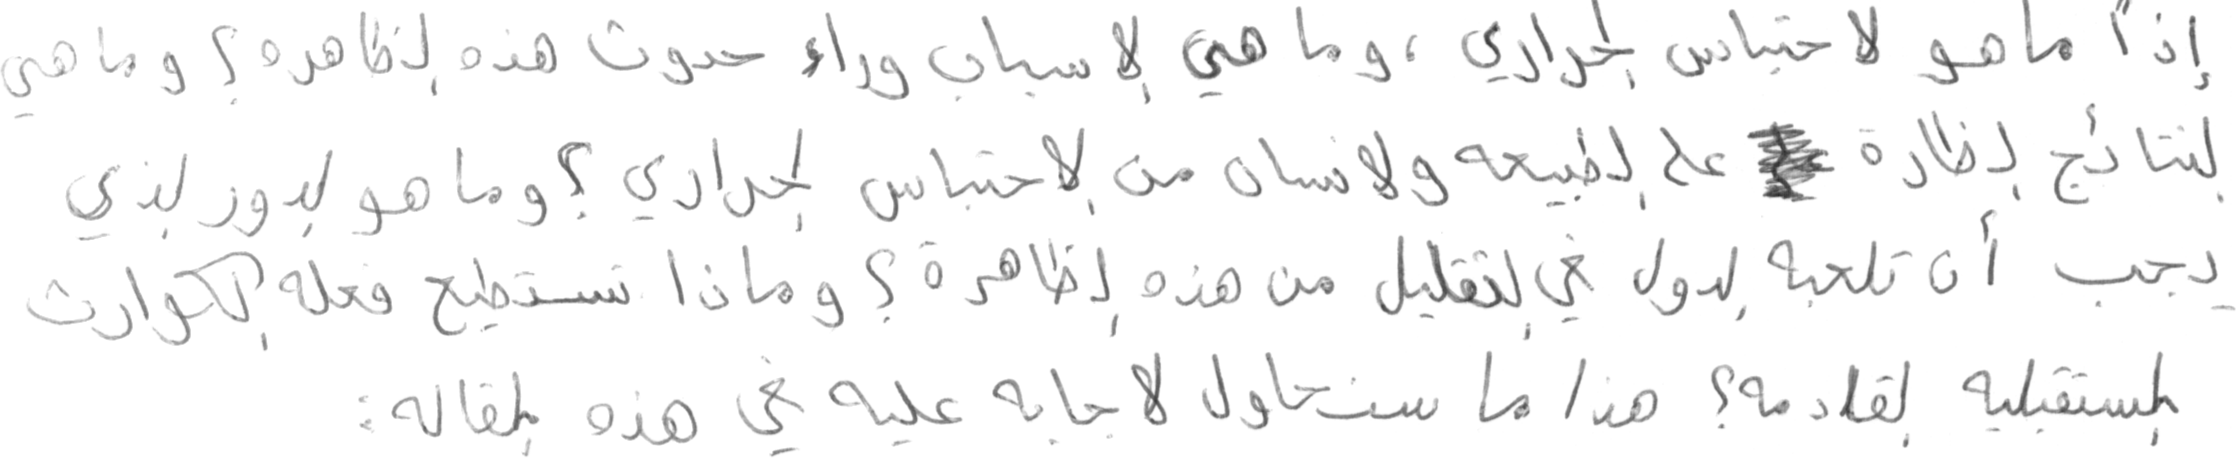 إذاً ما هو الاحتباس الحراري ، وما هي الاسباب وراء حدوث هذه الظاهره ؟ وما هي
النتائج الظارة على الطبيعه والانسان من الاحتباس الحراري ؟ وما هو الدور الذي
يجب أن تلعبه الدول في التقليل من هذه الظاهرة ؟ وماذا تستطيع فعله الكوارث
المستقبليه القادمه ؟ هذا ما سنحاول الاجابه عليه في هذه المقاله :